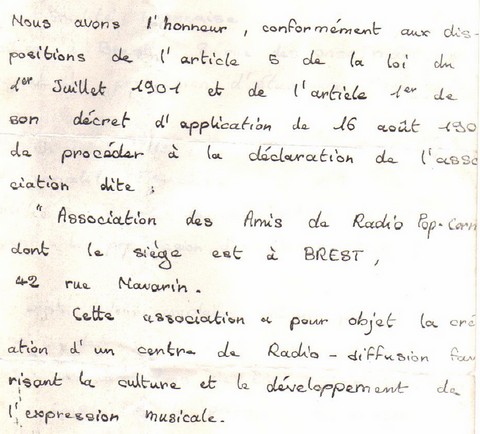 Nous avons l'honneur, conformément aux dis-
positions de l'article 5 de la loi du
1er Juillet 1901 et de l'article 1er de
son décret d'application de 16 août 190
de procéder à la déclaration de l'asso
ciation dite :
" Association des Amis de Radio Pop-Corn
dont le siège est à BREST,
42 rue Navarin.
Cette association a pour objet la cré
ation d'un centre de Radio-diffusion fav
risant la culture et le développement de
l'expression musicale.